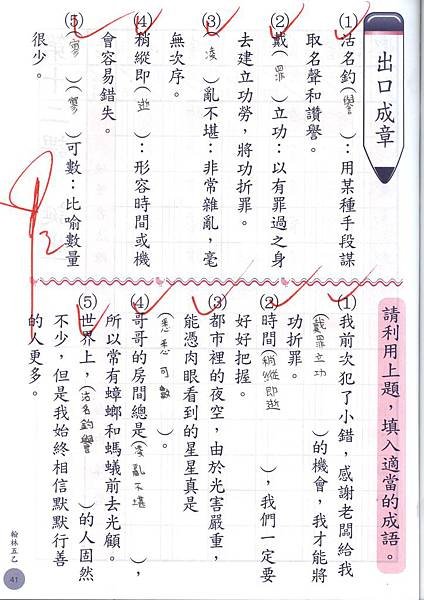 出口成章
(1)沽名釣(譽):用某種手段謀
取名聲和讚譽。
(2)戴(罪)立功:以有罪過之身
去建立功勞,將功折罪。
(3)(凌)亂不堪:非常雜亂,毫
無次序。
(4)稍縱即(逝):形容時間或機
會容易錯失。
(5)(寥)(寥)可數:比喻數量
很少。
請利用上題,填入適當的成語。
(1)我前次犯了小錯,感謝老闆給我
(戴罪立功)的機會,我才能將
功折罪。
(2)時間(稍縱即逝),我們一定要
好好把握。
(3)都市裡的夜空,由於光害嚴重,
能憑肉眼看到的星星真是
(寥寥可數)。
(4)哥哥的房間總是(凌亂不堪),
所以常有蟑螂和螞蟻前去光顧。
(5)世界上,(沽名釣譽)的人固然
不少,但是我始終相信默默行善
的人更多。
翰林五乙
41